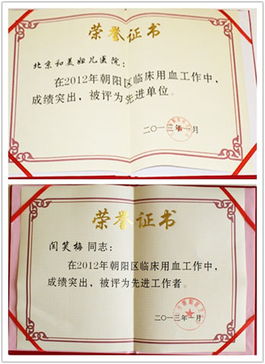 荣誉证书
北京和美妇儿医院：
在2012年朝阳区临床用血工作中，
成绩突出，被评为先进单位。
二〇一三年一月
荣誉证书
闫笑梅 同志：
在2012年朝阳区临床用血工作中，
成绩突出，被评为先进工作者。
二〇一三年一月